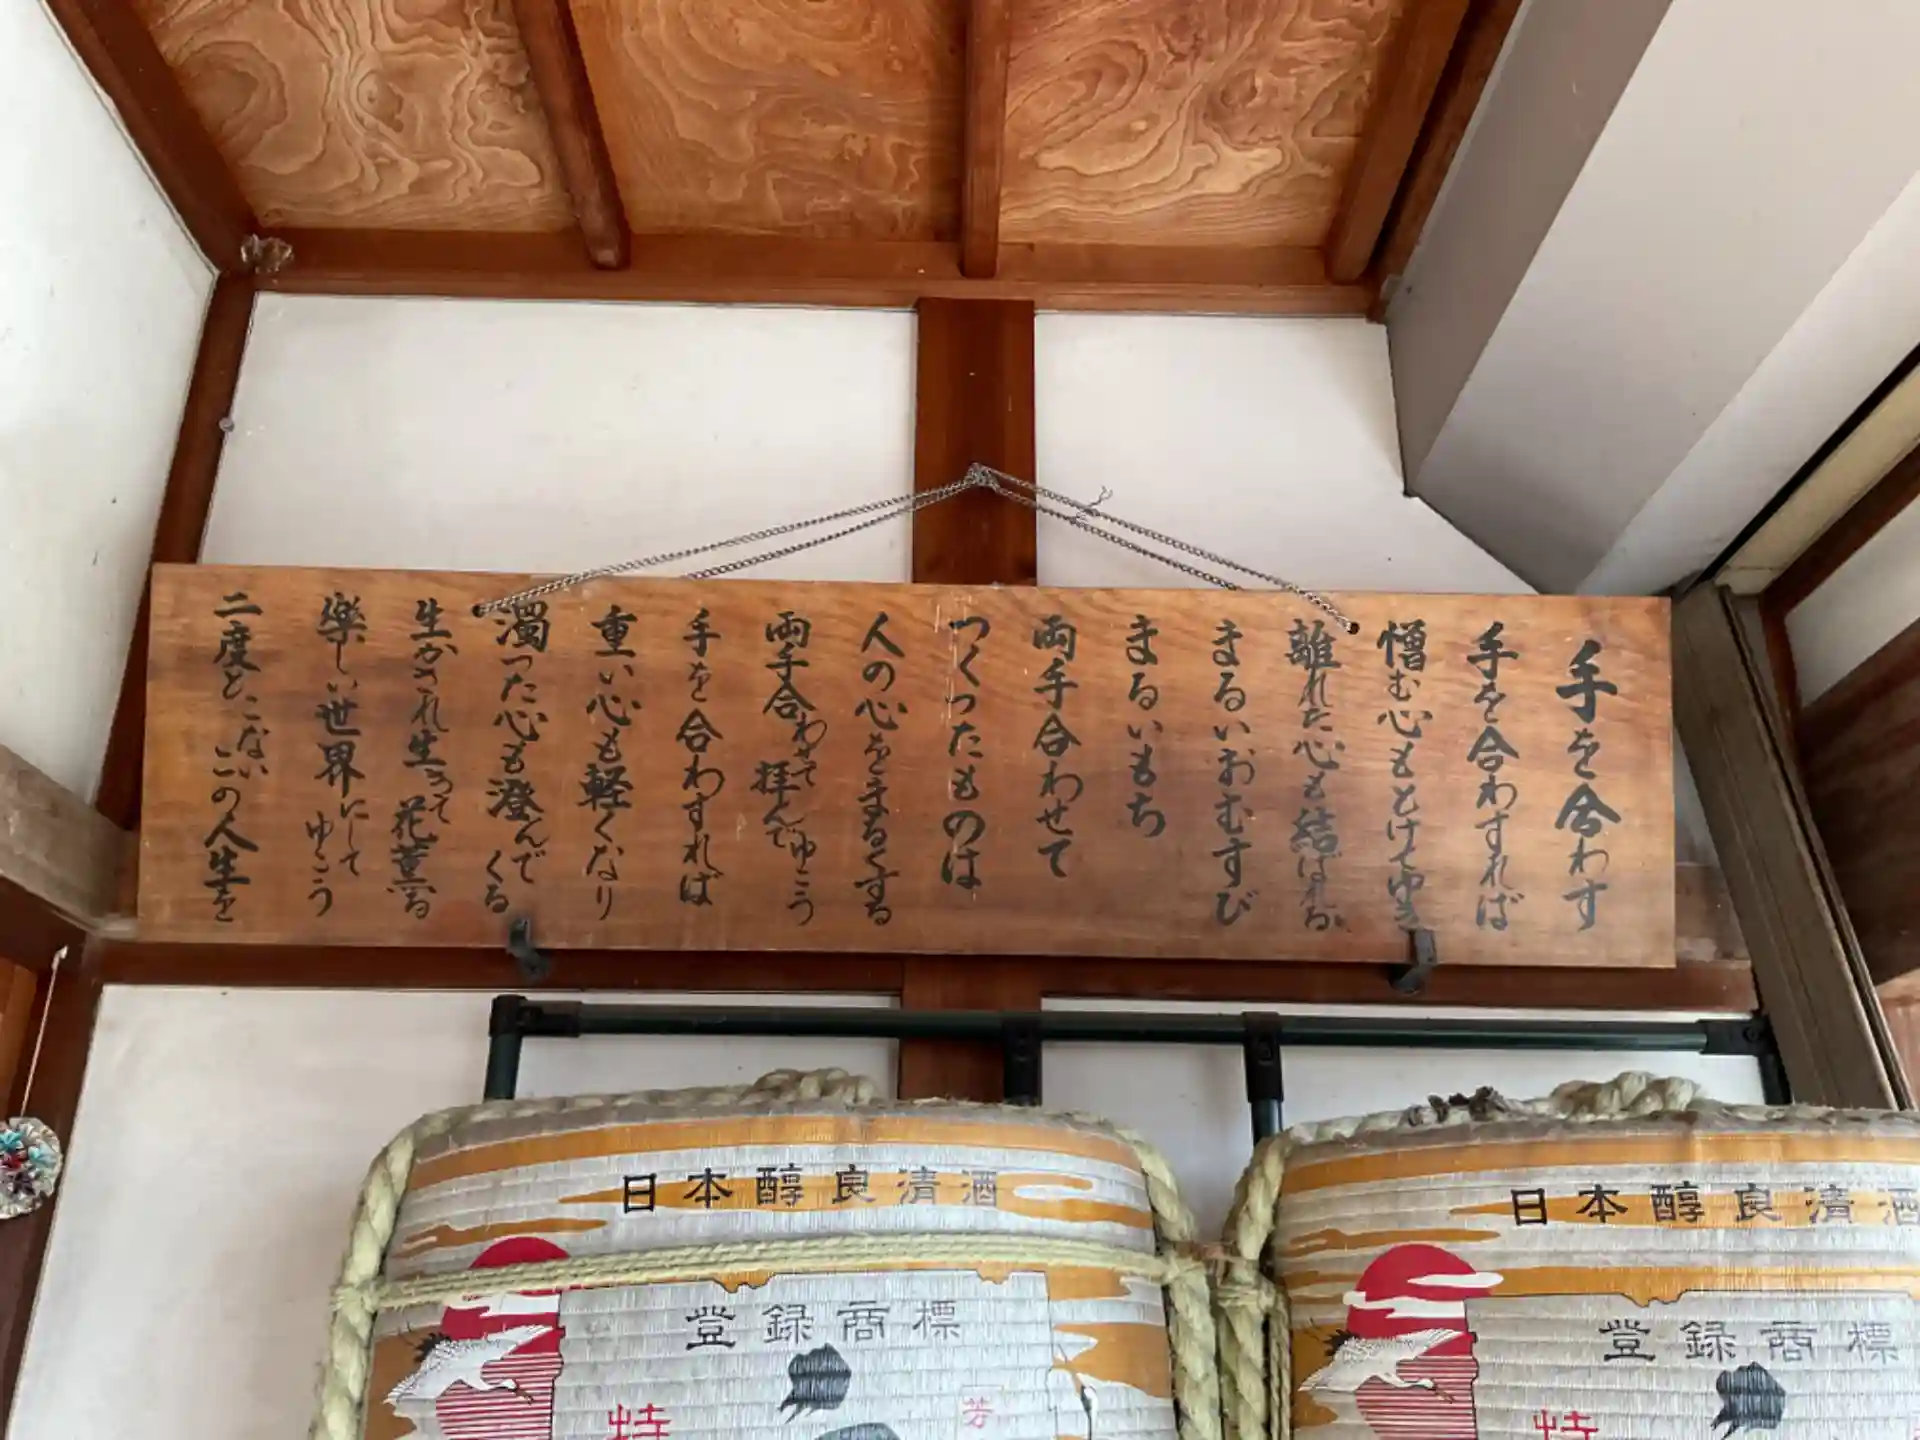 手を合わす
手を合わすれば
憎む心もとけてゆき
離れた心も結ばれる
まるいおむすび
まるいもち
両手合わせて
つくったものは
人の心をまるくする
両手合わせて拝んでゆこう
手を合わすれば
重い心も軽くなり
濁った心も澄んでくる
生かされ生きて花薫る
楽しい世界にしてゆこう
二度とこないこの人生を
日本醇良清酒
登録商標
特
芳
日本醇良清酒
登録商標
特